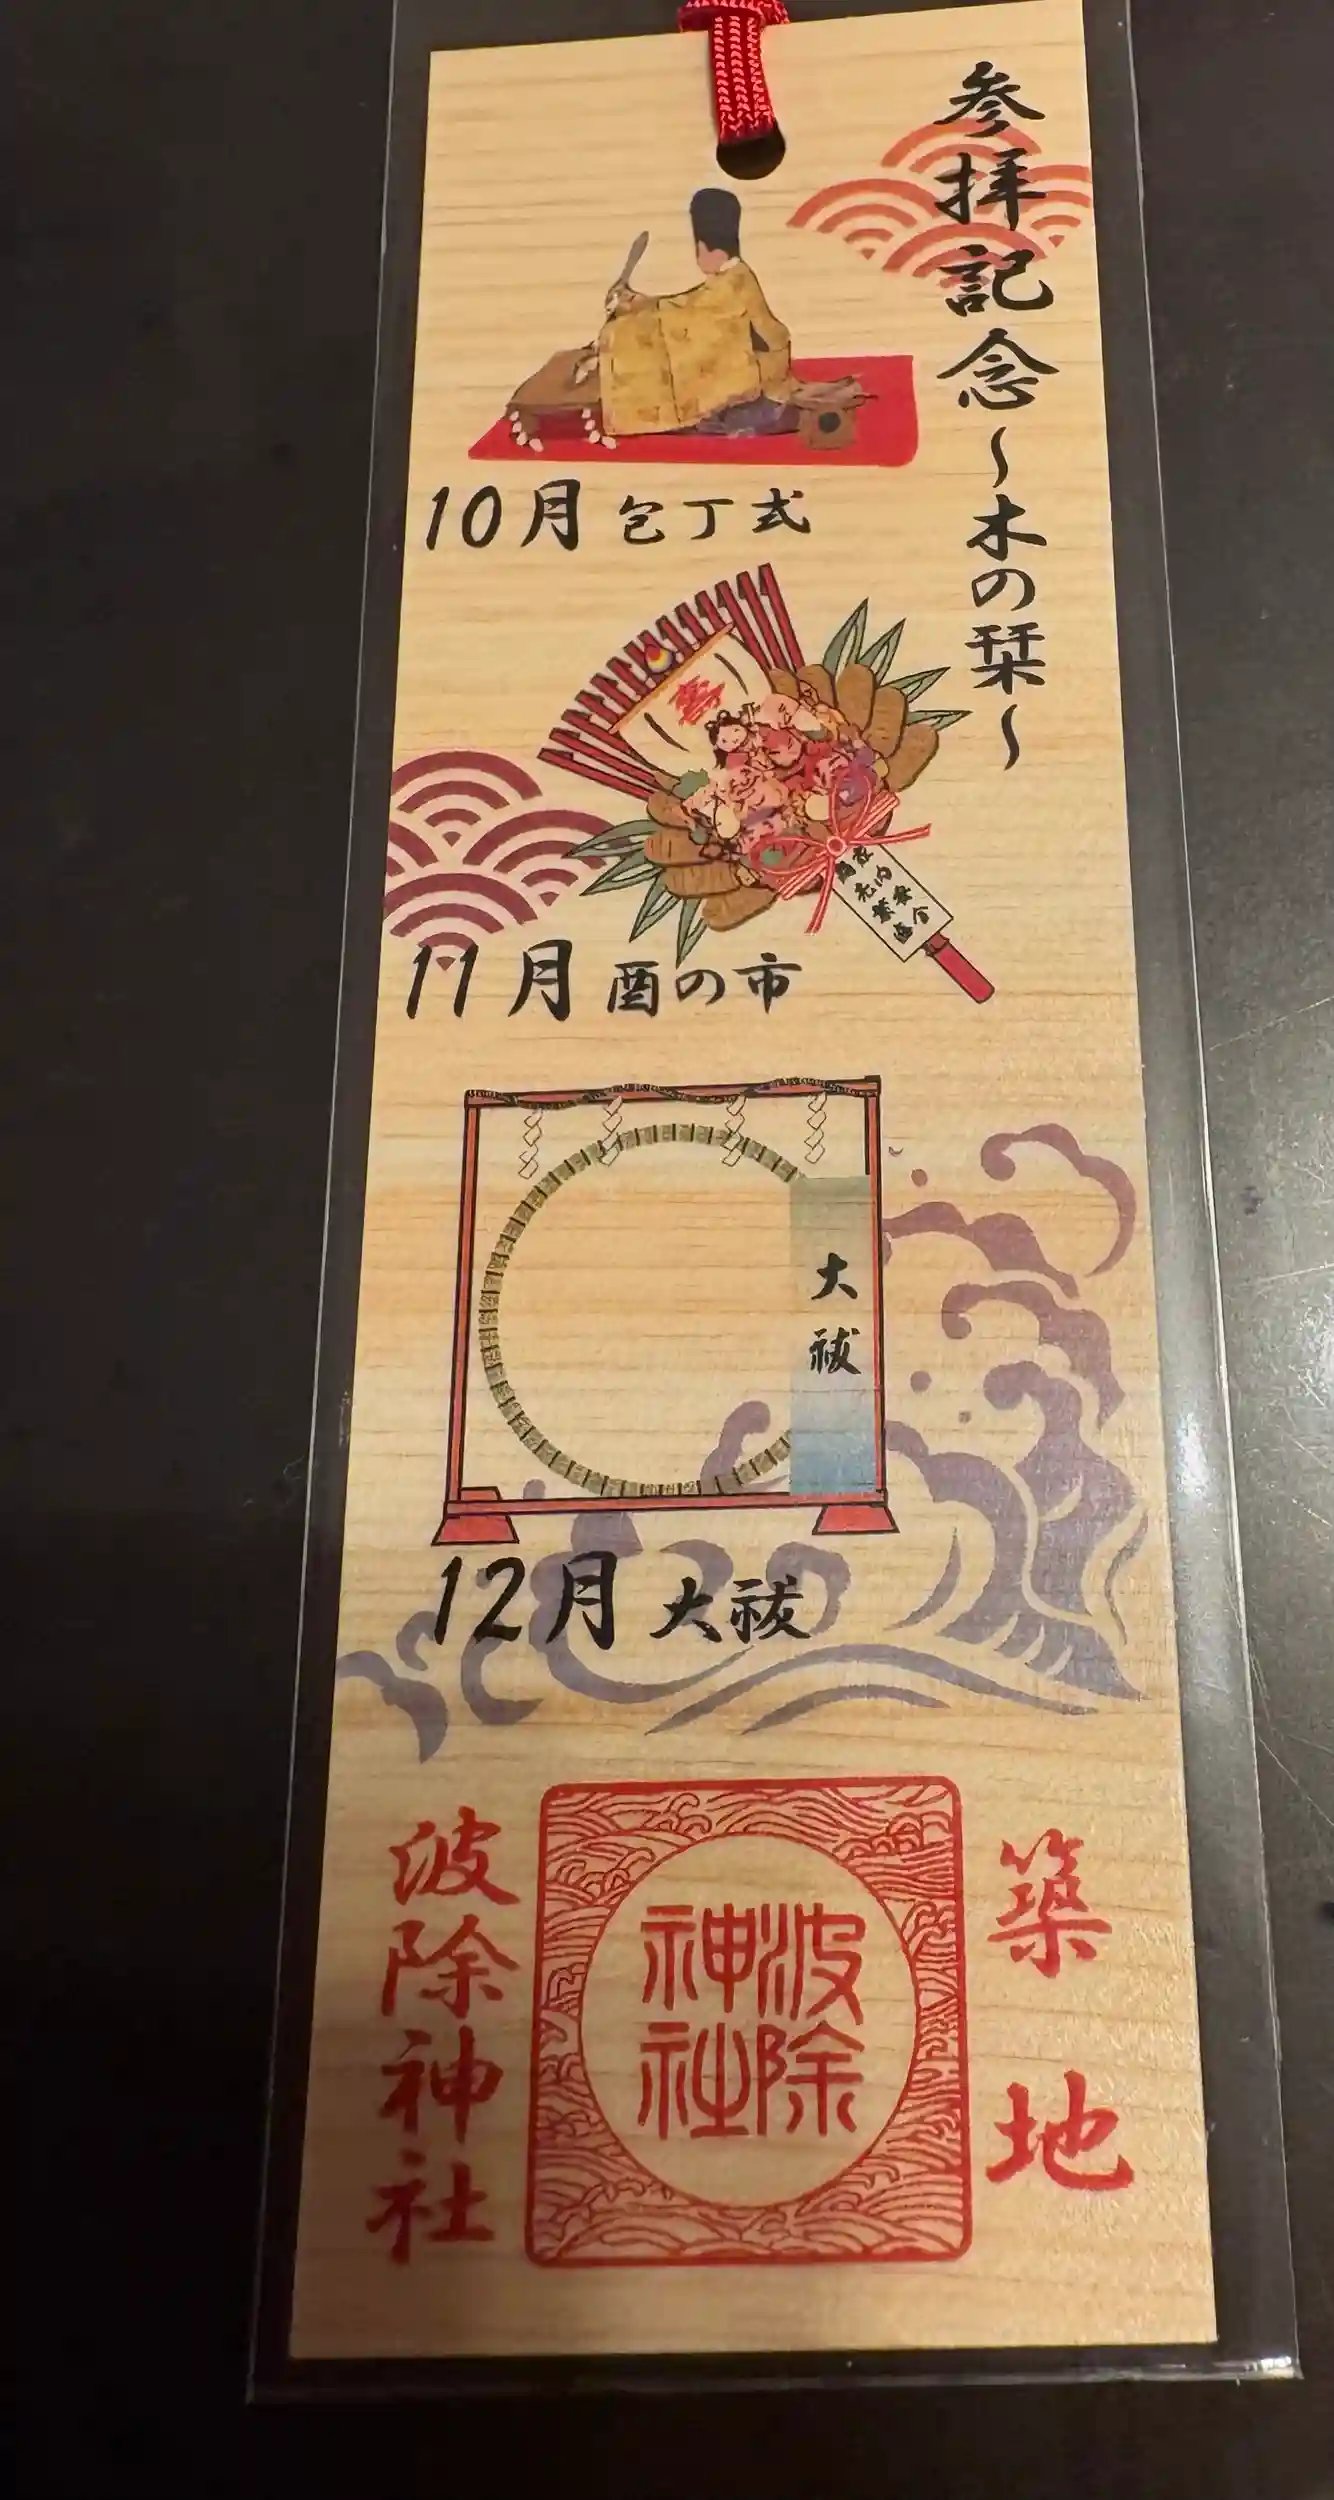 参拝記念～木の栞～
10月 包丁式
11月 酉の市
大祓
12月 大祓
築地
波除神社
波除神社